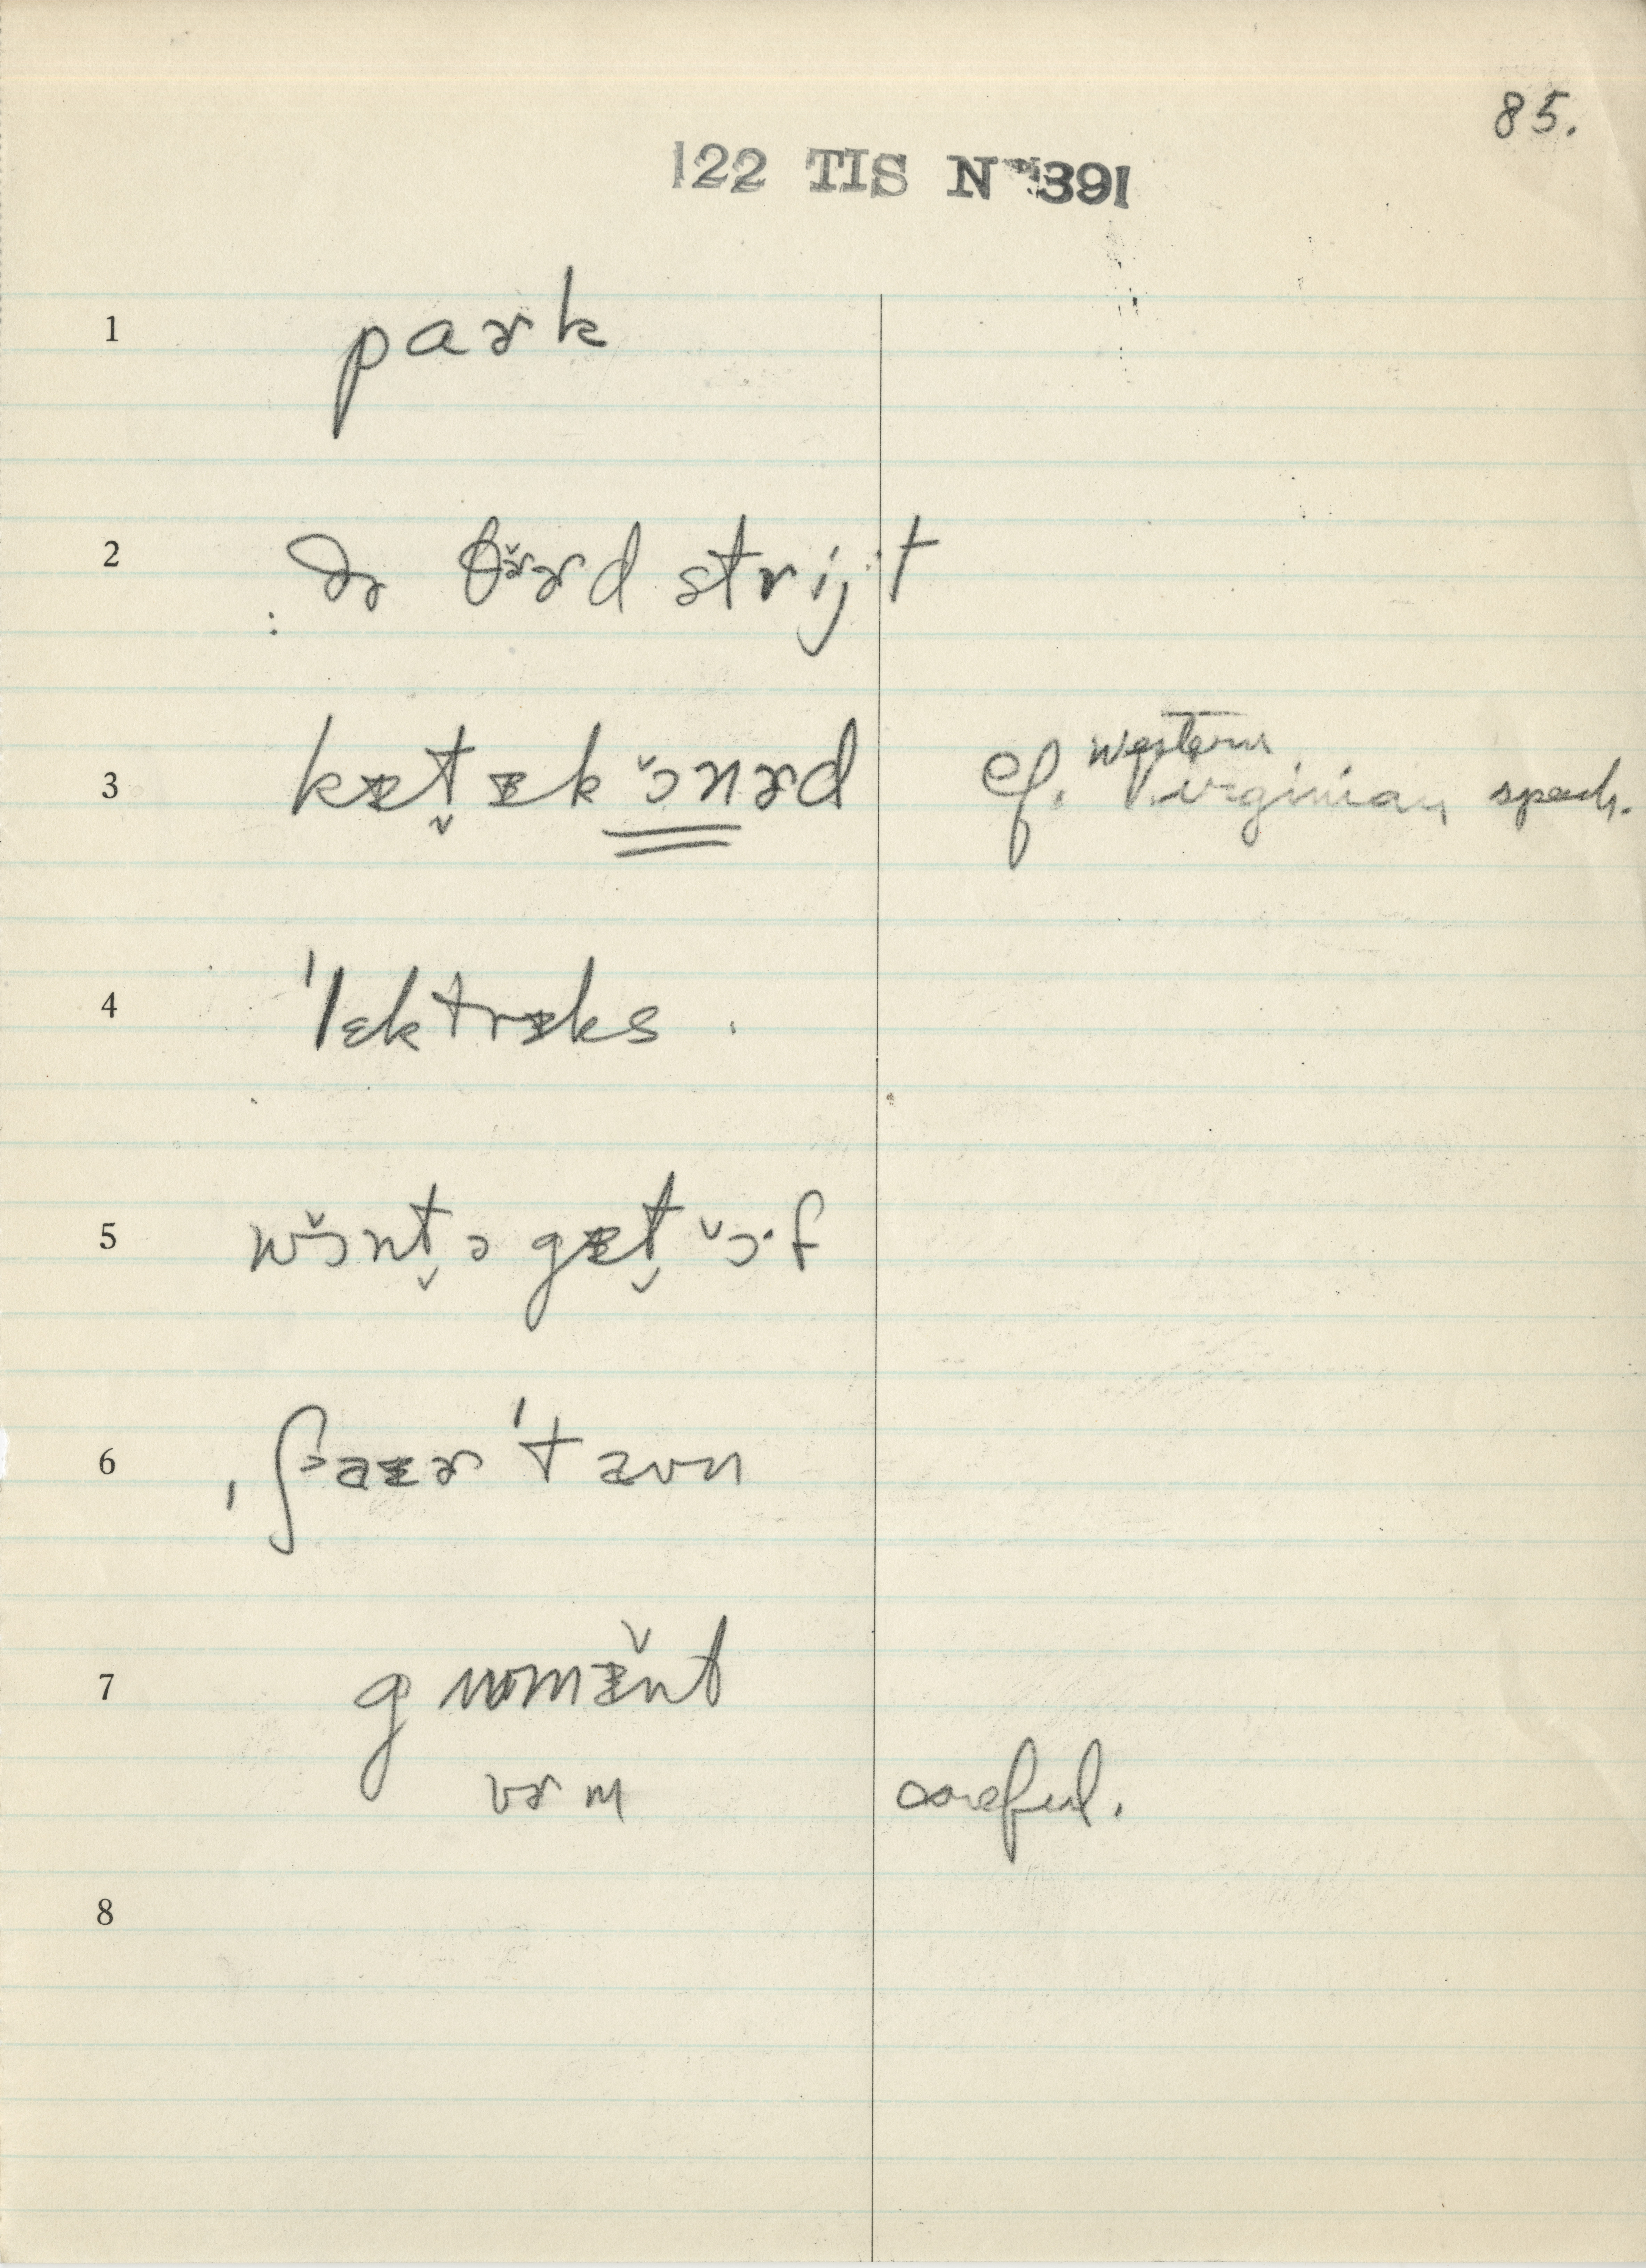 85.
122 TIS N 391
1 paɚk
2 ðɚ θɚ̌ɚd strijt
3 kᵻt̬ᵻkɔ̌nɚd cf. western Virginian speech.
4 'lɛktrᵻks
5 wɔ̌nt̬ə gᵻt̬ ɔ̌·f
6 ˌʃaᵻɚ'taʊn
7 gʌmᵻ̌nt
vɚm careful.
8